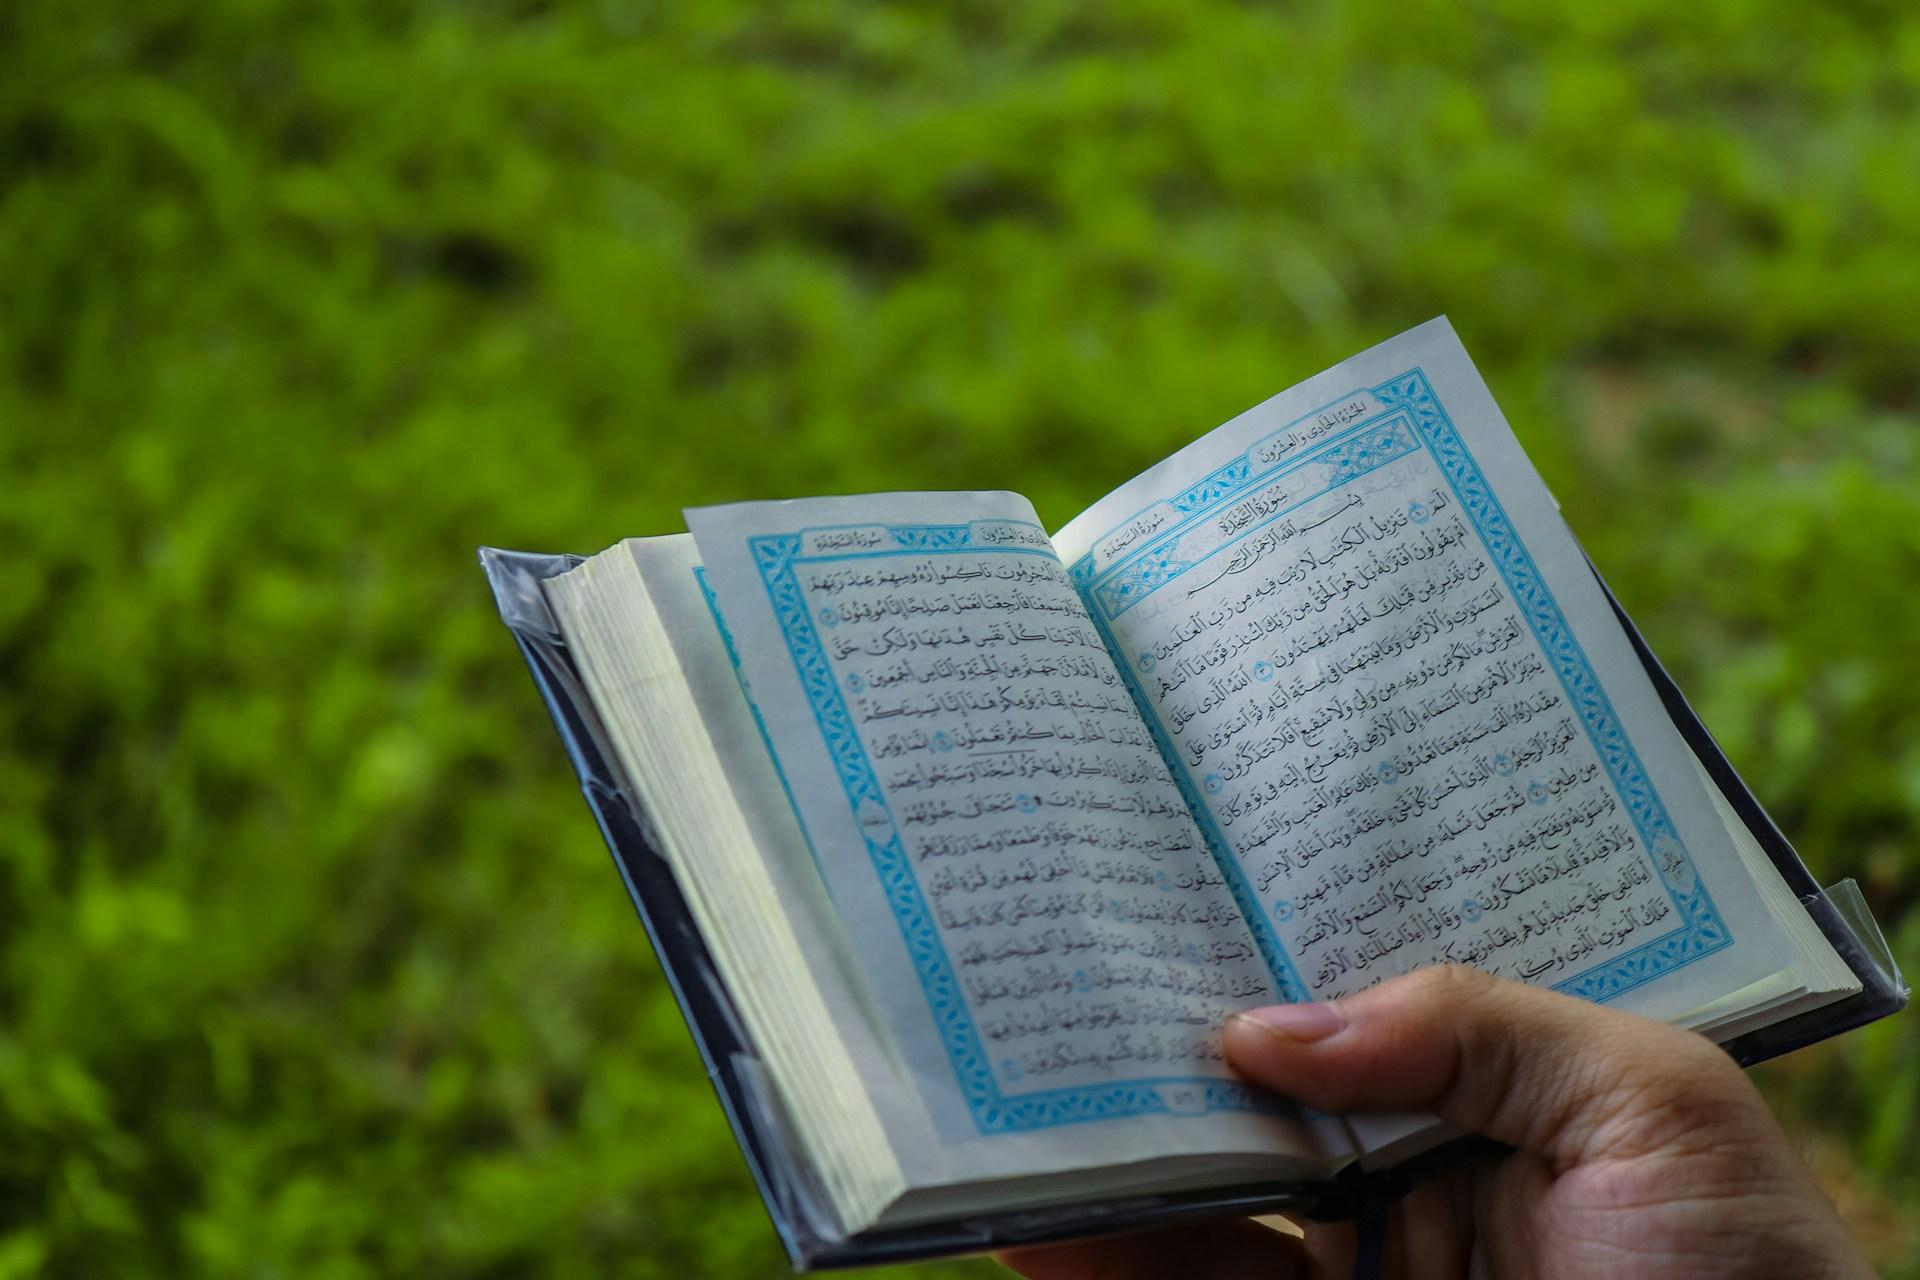 الجزء الحادي والعشرون
سورة السجدة
سُورَةُ السَّجْدَةِ
بِسْمِ اللَّهِ الرَّحْمَٰنِ الرَّحِيمِ
الٓمٓ ١ تَنزِيلُ الْكِتَٰبِ لَا رَيْبَ فِيهِ مِن رَّبِّ الْعَٰلَمِينَ ٢
أَمْ يَقُولُونَ افْتَرَىٰهُ بَلْ هُوَ الْحَقُّ مِن رَّبِّكَ لِتُنذِرَ قَوْمًا مَّا أَتَىٰهُم
مِّن نَّذِيرٍ مِّن قَبْلِكَ لَعَلَّهُمْ يَهْتَدُونَ ٣ اللَّهُ الَّذِي خَلَقَ
السَّمَٰوَٰتِ وَالْأَرْضَ وَمَا بَيْنَهُمَا فِي سِتَّةِ أَيَّامٍ ثُمَّ اسْتَوَىٰ عَلَى
الْعَرْشِ مَا لَكُم مِّن دُونِهِ مِن وَلِيٍّ وَلَا شَفِيعٍ أَفَلَا تَتَذَكَّرُونَ ٤
يُدَبِّرُ الْأَمْرَ مِنَ السَّمَاءِ إِلَى الْأَرْضِ ثُمَّ يَعْرُجُ إِلَيْهِ فِي يَوْمٍ كَانَ
مِقْدَارُهُ أَلْفَ سَنَةٍ مِّمَّا تَعُدُّونَ ٥ ذَٰلِكَ عَٰلِمُ الْغَيْبِ وَالشَّهَٰدَةِ
الْعَزِيزُ الرَّحِيمُ ٦ الَّذِي أَحْسَنَ كُلَّ شَيْءٍ خَلَقَهُ وَبَدَأَ خَلْقَ الْإِنسَٰنِ
مِن طِينٍ ٧ ثُمَّ جَعَلَ نَسْلَهُ مِن سُلَٰلَةٍ مِّن مَّاءٍ مَّهِينٍ ٨
ثُمَّ سَوَّىٰهُ وَنَفَخَ فِيهِ مِن رُّوحِهِ وَجَعَلَ لَكُمُ السَّمْعَ وَالْأَبْصَٰرَ
وَالْأَفْئِدَةَ قَلِيلًا مَّا تَشْكُرُونَ ٩ وَقَالُوا أَءِذَا ضَلَلْنَا فِي الْأَرْضِ
أَءِنَّا لَفِي خَلْقٍ جَدِيدٍ بَلْ هُم بِلِقَاءِ رَبِّهِمْ
مَّلَكُ الْمَوْتِ الَّذِي وُكِّلَ
والعشرون
سورة السجدة
الْمُجْرِمُونَ نَاكِسُوا رُءُوسِهِمْ عِندَ رَبِّهِمْ
وَسَمِعْنَا فَارْجِعْنَا نَعْمَلْ صَٰلِحًا إِنَّا مُوقِنُونَ ١٢
لَأَتَيْنَا كُلَّ نَفْسٍ هُدَىٰهَا وَلَٰكِنْ حَقَّ
لَأَمْلَأَنَّ جَهَنَّمَ مِنَ الْجِنَّةِ وَالنَّاسِ أَجْمَعِينَ ١٣
بِمَا نَسِيتُمْ لِقَاءَ يَوْمِكُمْ هَٰذَا إِنَّا نَسِينَٰكُمْ
عَذَابَ الْخُلْدِ بِمَا كُنتُمْ تَعْمَلُونَ ١٤ إِنَّمَا يُؤْمِنُ
الَّذِينَ إِذَا ذُكِّرُوا بِهَا خَرُّوا سُجَّدًا وَسَبَّحُوا بِحَمْدِ
وَهُمْ لَا يَسْتَكْبِرُونَ ١٥ تَتَجَافَىٰ جُنُوبُهُمْ
الْمَضَاجِعِ يَدْعُونَ رَبَّهُمْ خَوْفًا وَطَمَعًا وَمِمَّا رَزَقْنَٰهُمْ
يُنفِقُونَ ١٦ فَلَا تَعْلَمُ نَفْسٌ مَّا أُخْفِيَ لَهُم مِّن قُرَّةِ أَعْيُنٍ
جَزَاءً بِمَا كَانُوا يَعْمَلُونَ ١٧ أَفَمَن كَانَ مُؤْمِنًا كَمَن كَانَ فَاسِقًا
لَّا يَسْتَوُونَ ١٨ أَمَّا الَّذِينَ ءَامَنُوا وَعَمِلُوا الصَّٰلِحَٰتِ فَلَهُمْ
جَنَّٰتُ الْمَأْوَىٰ نُزُلًا بِمَا كَانُوا يَعْمَلُونَ ١٩ وَأَمَّا الَّذِينَ فَسَقُوا
يَخْرُجُوا مِنْهَا أُعِيدُوا فِيهَا
النَّارِ الَّذِي كُنتُم بِهِ تُكَذِّبُونَ ٢٠
٤١٦